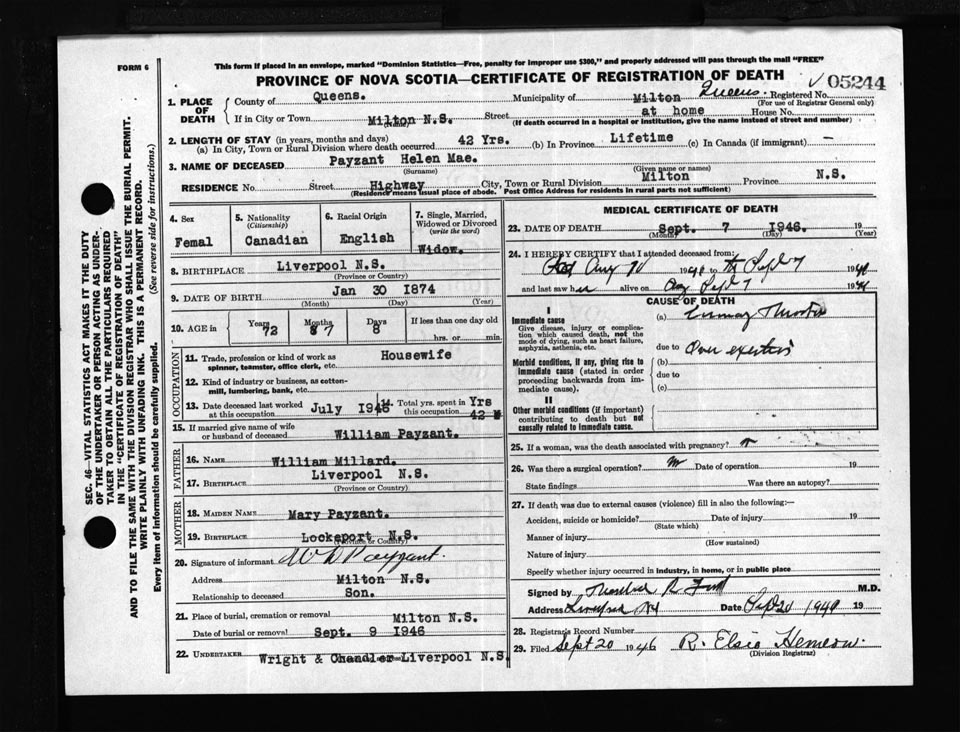 FORM 6
This form if placed in an envelope, marked "Dominion Statistics—Free, penalty for improper use $300," and properly addressed will pass through the mail "FREE"
PROVINCE OF NOVA SCOTIA—CERTIFICATE OF REGISTRATION OF DEATH
05244
1. PLACE OF DEATH
County of Queens. Municipality of Milton Queens. Registered No.
(For use of Registrar General only)
If in City or Town Milton N.S. Street at home House No.
(Name) (If death occurred in a hospital or institution, give the name instead of street and number)
2. LENGTH OF STAY (in years, months and days)
(a) In City, Town or Rural Division where death occurred 42 Yrs. (b) In Province Lifetime (c) In Canada (if immigrant) —
3. NAME OF DECEASED Payzant Helen Mae.
(Surname) (Given name or names)
RESIDENCE No. Street Highway City, Town or Rural Division Milton Province N.S.
(Residence means usual place of abode. Post Office Address for residents in rural parts not sufficient)
4. Sex Femal
5. Nationality (Citizenship) Canadian
6. Racial Origin English
7. Single, Married, Widowed or Divorced (write the word) Widow.
8. BIRTHPLACE Liverpool N.S.
(Province or Country)
9. DATE OF BIRTH Jan 30 1874
(Month) (Day) (Year)
10. AGE in Years 72 Months 7 Days 8 If less than one day old hrs. or min.
OCCUPATION
11. Trade, profession or kind of work as spinner, teamster, office clerk, etc. Housewife
12. Kind of industry or business, as cotton-mill, lumbering, bank, etc.
13. Date deceased last worked at this occupation July 1946 14. Total yrs. spent in this occupation Yrs 42
15. If married give name of wife or husband of deceased William Payzant.
FATHER
16. NAME William Millard.
17. BIRTHPLACE Liverpool N.S.
(Province or Country)
MOTHER
18. MAIDEN NAME Mary Payzant.
19. BIRTHPLACE Lockeport N.S.
(Province or Country)
20. Signature of informant W D Payzant.
Address Milton N.S.
Relationship to deceased Son.
21. Place of burial, cremation or removal Milton N.S.
Date of burial or removal Sept. 9 1946
22. UNDERTAKER Wright & Chandler Liverpool N.S.
MEDICAL CERTIFICATE OF DEATH
23. DATE OF DEATH Sept. 7 1946. 19
(Month) (Day) (Year)
24. I HEREBY CERTIFY that I attended deceased from:
Aug 194 to Sept 7 194
and last saw her alive on Sept 7 194
CAUSE OF DEATH
I
Immediate cause
Give disease, injury or complication which caused death, not the mode of dying, such as heart failure, asphyxia, asthenia, etc.
(a)
due to Over exertion
Morbid conditions, if any, giving rise to immediate cause (stated in order proceeding backwards from immediate cause).
(b)
due to
(c)
II
Other morbid conditions (if important) contributing to death but not causally related to immediate cause.
25. If a woman, was the death associated with pregnancy?
26. Was there a surgical operation? Date of operation 19
State findings Was there an autopsy?
27. If death was due to external causes (violence) fill in also the following:—
Accident, suicide or homicide? Date of injury 19
(State which)
Manner of injury
(How sustained)
Nature of injury
Specify whether injury occurred in industry, in home, or in public place
Signed by M.D.
Address Date Sept 20 194 19
28. Registrar's Record Number
29. Filed Sept 20 1946 R. Elsie Hemeon.
(Division Registrar)
SEC. 46—VITAL STATISTICS ACT MAKES IT THE DUTY
OF THE UNDERTAKER OR PERSON ACTING AS UNDER-
TAKER TO OBTAIN ALL THE PARTICULARS REQUIRED
IN THE "CERTIFICATE OF REGISTRATION OF DEATH"
AND TO FILE THE SAME WITH THE DIVISION REGISTRAR WHO SHALL ISSUE THE BURIAL PERMIT.
WRITE PLAINLY WITH UNFADING INK. THIS IS A PERMANENT RECORD.
Every item of Information should be carefully supplied. (See reverse side for instructions.)